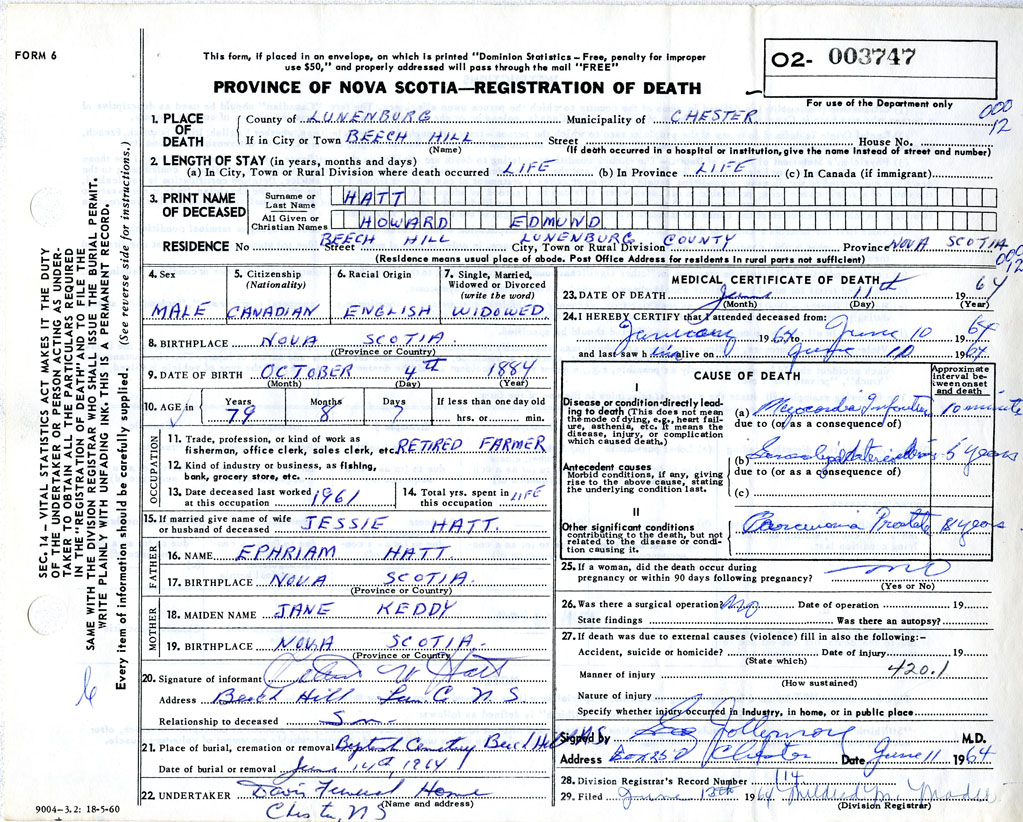 FORM 6
This form, if placed in an envelope, on which is printed "Dominion Statistics – Free, penalty for improper
use $50," and properly addressed will pass through the mail "FREE"
O2- 003747
PROVINCE OF NOVA SCOTIA—REGISTRATION OF DEATH
For use of the Department only
000
12
1. PLACE OF DEATH
County of LUNENBURG Municipality of CHESTER
If in City or Town BEECH HILL Street House No.
(Name) (If death occurred in a hospital or institution, give the name instead of street and number)
2. LENGTH OF STAY (in years, months and days)
(a) In City, Town or Rural Division where death occurred LIFE (b) In Province LIFE (c) In Canada (if immigrant)
3. PRINT NAME OF DECEASED
Surname or Last Name HATT
All Given or Christian Names HOWARD EDMUND
RESIDENCE No Street BEECH HILL City, Town or Rural Division LUNENBURG COUNTY Province NOVA SCOTIA
(Residence means usual place of abode. Post Office Address for residents in rural parts not sufficient)
000
12
4. Sex 5. Citizenship (Nationality) 6. Racial Origin 7. Single, Married, Widowed or Divorced (write the word)
MALE CANADIAN ENGLISH WIDOWED
8. BIRTHPLACE NOVA SCOTIA
(Province or Country)
9. DATE OF BIRTH OCTOBER 4th 1884
(Month) (Day) (Year)
10. AGE in Years Months Days If less than one day old
79 8 7 hrs. or min.
OCCUPATION
11. Trade, profession, or kind of work as
fisherman, office clerk, sales clerk, etc. RETIRED FARMER
12. Kind of industry or business, as fishing,
bank, grocery store, etc.
13. Date deceased last worked at this occupation 1961 14. Total yrs. spent in this occupation LIFE
15. If married give name of wife or husband of deceased JESSIE HATT.
FATHER
16. NAME EPHRIAM HATT
17. BIRTHPLACE NOVA SCOTIA.
(Province or Country)
MOTHER
18. MAIDEN NAME JANE KEDDY
19. BIRTHPLACE NOVA SCOTIA.
(Province or Country)
20. Signature of informant W Hatt
Address Beech Hill Lun. C. N.S.
Relationship to deceased Son
21. Place of burial, cremation or removal Baptist Cemetery Beech Hill N.S
Date of burial or removal June 14th, 1964
22. UNDERTAKER Davis Funeral Home
(Name and address)
Chester, N S
9004–3.2: 18-5-60
MEDICAL CERTIFICATE OF DEATH
23. DATE OF DEATH June 11th 1964
(Month) (Day) (Year)
24. I HEREBY CERTIFY that I attended deceased from:
January 1964 to June 10 1964
and last saw him alive on June 10 1964
CAUSE OF DEATH
Approximate interval between onset and death
I
Disease or condition directly leading to death (This does not mean the mode of dying, e.g., heart failure, asthenia, etc. It means the disease, injury, or complication which caused death.)
(a) Myocardial Infarction 10 minute
due to (or as a consequence of)
Antecedent causes
Morbid conditions, if any, giving rise to the above cause, stating the underlying condition last.
(b) 5 years
due to (or as a consequence of)
(c)
II
Other significant conditions contributing to the death, but not related to the disease or condition causing it.
Carcinoma Prostate 8 years
25. If a woman, did the death occur during pregnancy or within 90 days following pregnancy? no
(Yes or No)
26. Was there a surgical operation? No Date of operation 19
State findings Was there an autopsy?
27. If death was due to external causes (violence) fill in also the following:–
Accident, suicide or homicide? Date of injury 19
(State which)
Manner of injury 420.1
(How sustained)
Nature of injury
Specify whether injury occurred in Industry, in home, or in public place
Signed by M.D.
Address Chester Date June 11 1964
28. Division Registrar's Record Number 114
29. Filed June 13th 1964
(Division Registrar)
SEC. 14 – VITAL STATISTICS ACT MAKES IT THE DUTY
OF THE UNDERTAKER OR PERSON ACTING AS UNDERTAKER
TO OBTAIN ALL THE PARTICULARS REQUIRED
IN THE "REGISTRATION OF DEATH" AND TO FILE THE
SAME WITH THE DIVISION REGISTRAR WHO SHALL ISSUE THE BURIAL PERMIT.
WRITE PLAINLY WITH UNFADING INK. THIS IS A PERMANENT RECORD.
Every item of information should be carefully supplied. (See reverse side for instructions.)